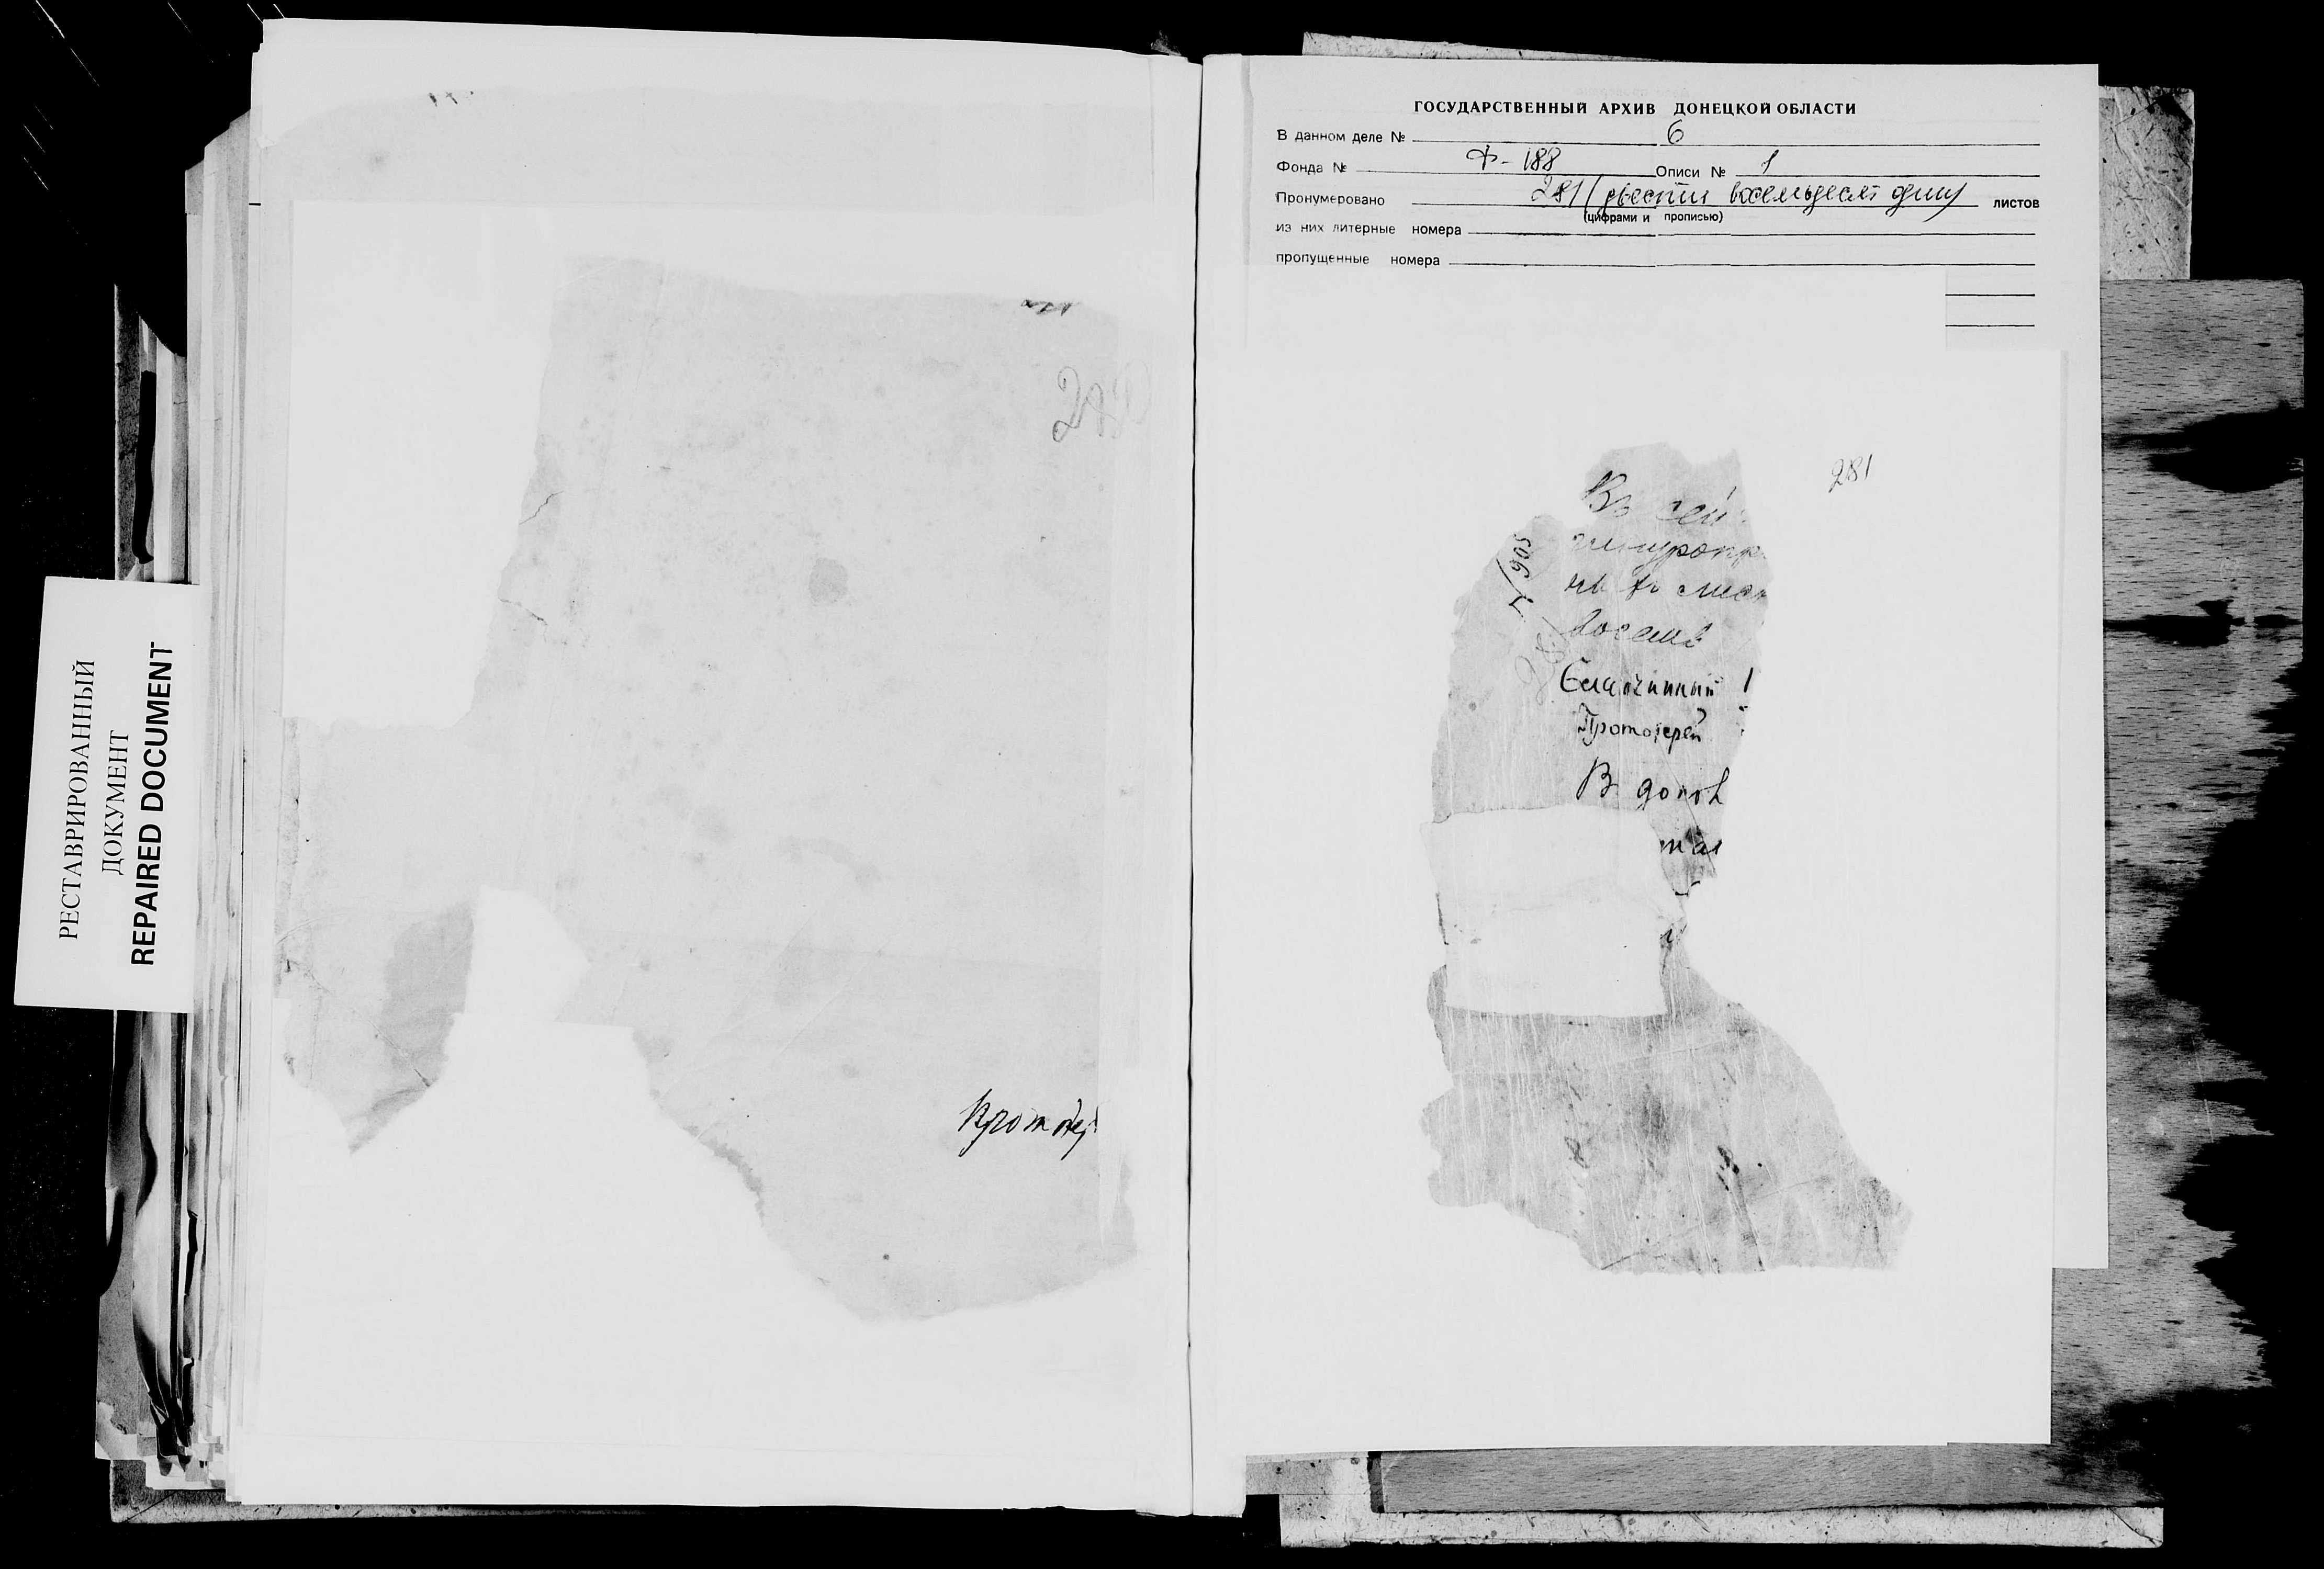 РЕСТАВРИРОВАННЫЙ
ДОКУМЕНТ
REPAIRED DOCUMENT
280
Протоіер
ГОСУДАРСТВЕННЫЙ АРХИВ ДОНЕЦКОЙ ОБЛАСТИ
В данном деле № 6
Фонда № Ф-188 Описи № 1
Пронумеровано 281 (двести восемьдесят один) листов
(цифрами и прописью)
из них литерные номера
пропущенные номера
281
Въ сей
шнуропр
восемь
Благочинный
Протоіерей